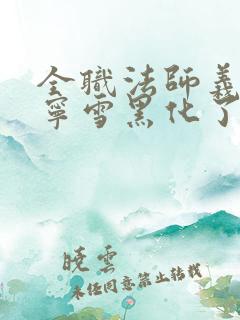 全職法師義
寧雪黑化了
曉雲
未經同意禁止轉載